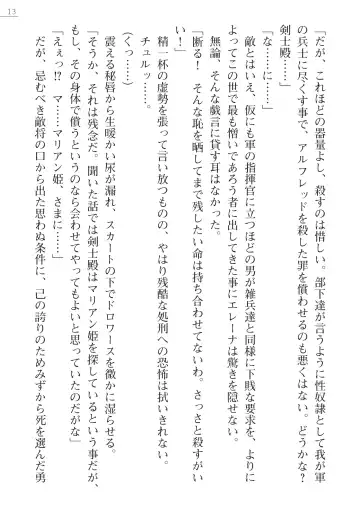 13
「だが、これほどの器量よし、殺すのは惜しい。部下達が言うように性奴隷として我が軍
の兵士に尽くす事で、アルフレッドを殺した罪を償わせるのも悪くはない。どうかな?
剣士殿」
「な……に……」
敵とはいえ、仮にも軍の指揮官に立つほどの男が雑兵達と同様に下賎な要求を、よりに
よってこの世で最も憎いであろう者に出してきた事にエレーナは驚きを隠せない。
無論、そんな戯言に貸す耳はなかった。
「断る! そんな恥を晒してまで残したい命は持ち合わせてないわ。さっさと殺すがい
い!」
精一杯の虚勢を張って言い放つものの、やはり残酷な処刑への恐怖は拭いきれない。
チュルッ……。
(くっ……)
震える秘唇から生暖かい尿が漏れ、スカートの下でドロワースを微かに湿らせる。
「そうか、それは残念だ。聞いた話では剣士殿はマリアン姫を探しているという事だが、
もし、その身体で償うというのなら会わせてやってもよいと思っていたのだがな」
「えぇっ!? マ……マリアン姫、さまに……」
だが、忌むべき敵将の口から出た思わぬ条件に、己の誇りのためみずから死を選んだ勇